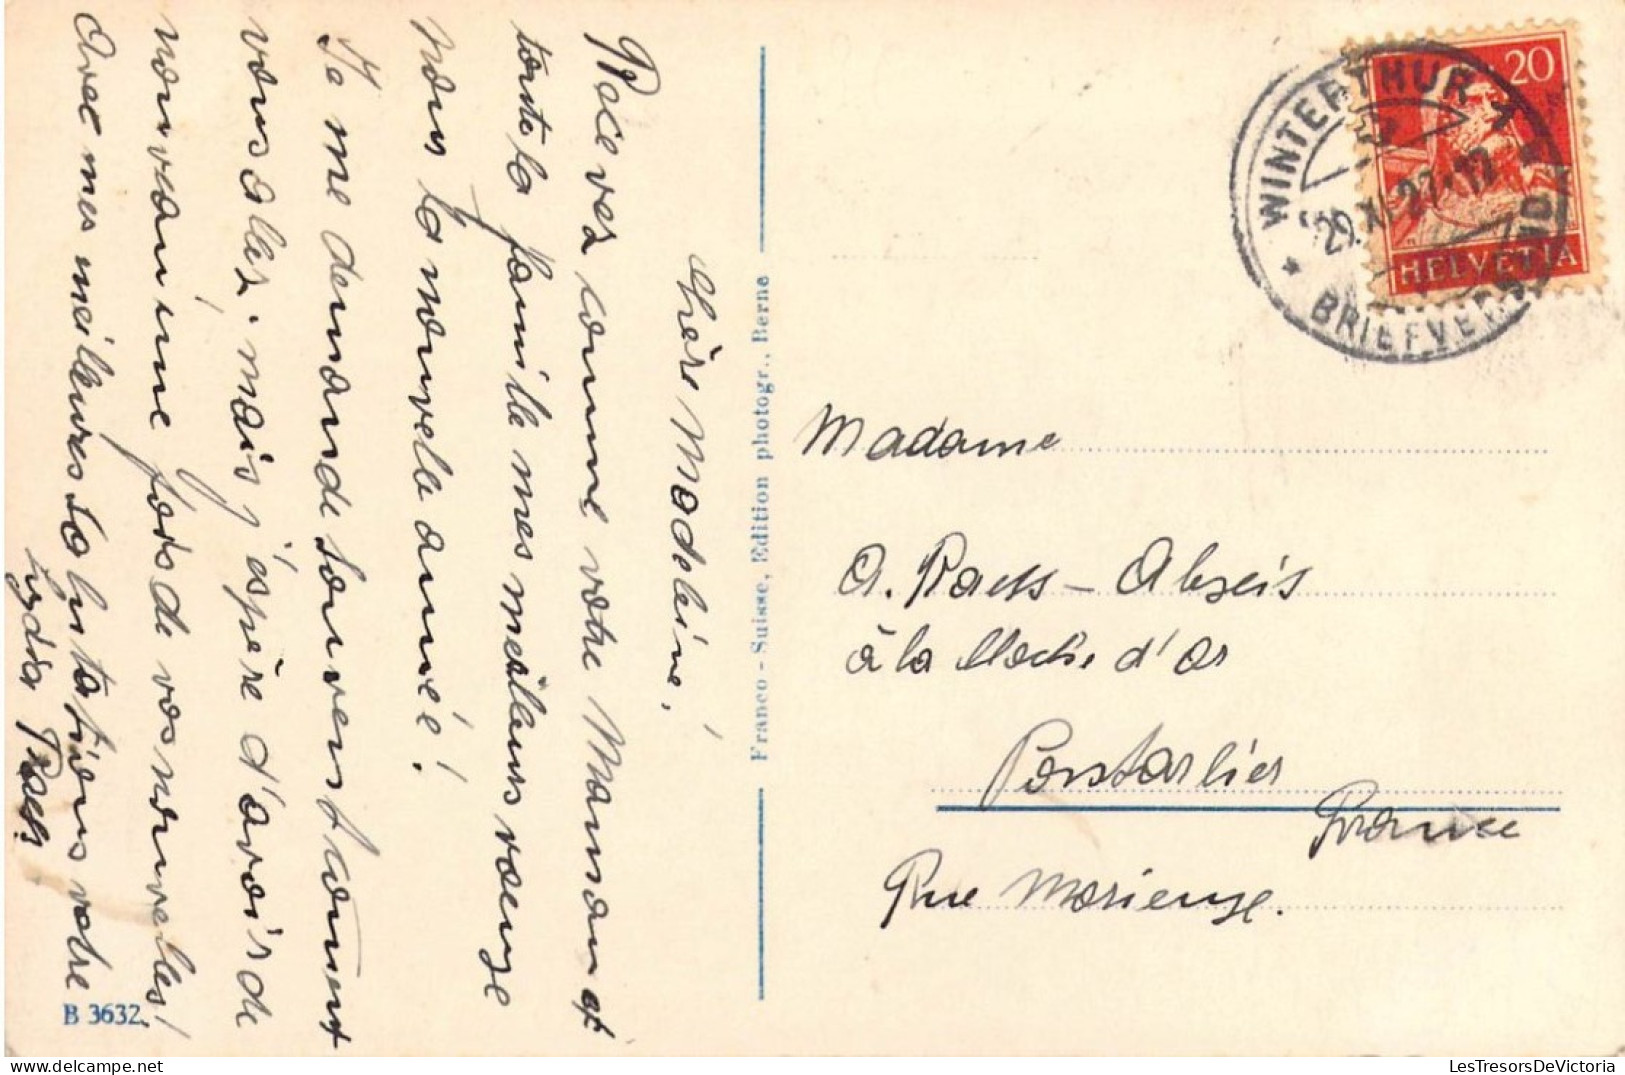 Chère Madeleine,
Recevez comme votre Maman et
toute la famille mes meileurs vœuxe
pour la nouvelle année!
Je me demande souvent comment
vous allez. mais j'éspère d'avoir de
nouveau une fois de vos nouvelles!
Avec mes meilleures salutations votre
Lydia Raess
B 3632.
Franco - Suisse, Edition photogr., Berne
WINTERTHUR 1
29.XI.27.17
* BRIEFVERSAND
20
HELVETIA
Madame
A. Raess - Abzeis
à la Cloche d'or
Pontarlier
France
Rue Morieuse.
LesTresorsDeVictoria